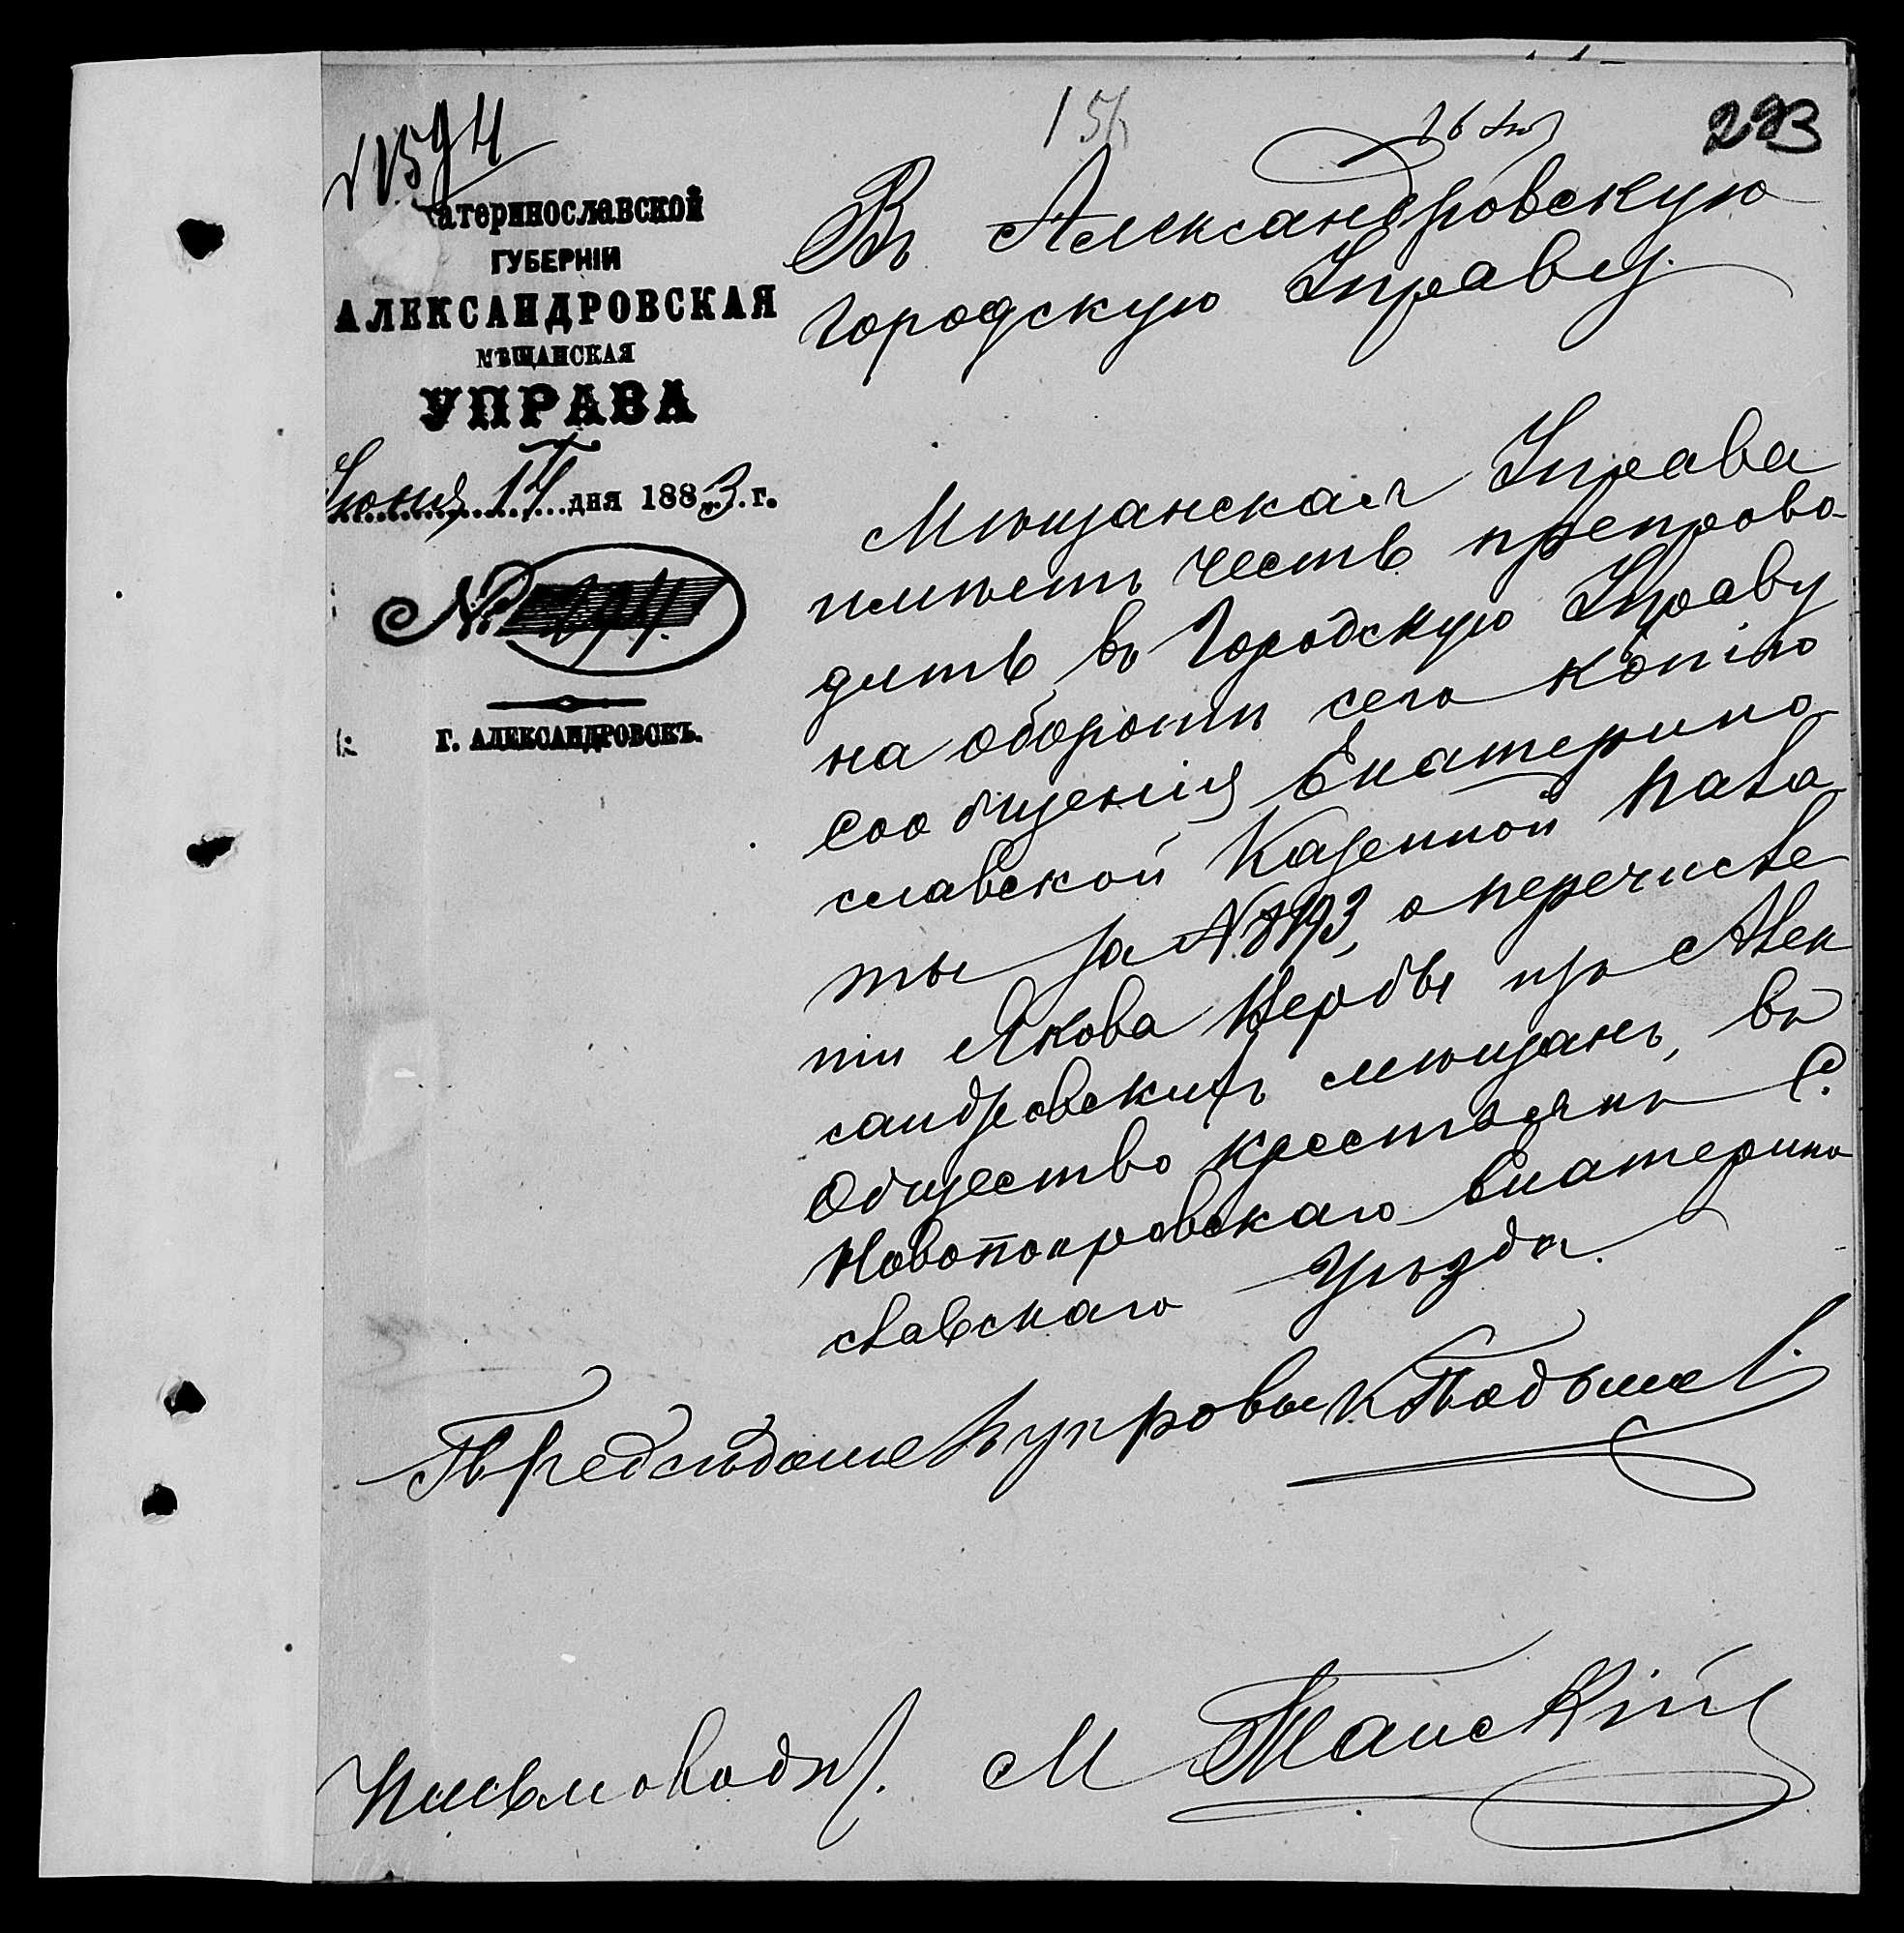 № 1594
293
Екатеринославской
ГУБЕРНІИ
АЛЕКСАНДРОВСКАЯ
МѢЩАНСКАЯ
УПРАВА
Іюня 14 дня 1883 г.
№ 294.
Г. АЛЕКСАНДРОВСКЪ.
Въ Александровскую
Городскую Управу.
Мѣщанская Управа
имѣетъ честь препрово-
дить въ Городскую Управу
на оборотѣ сего копію
сообщенія Екатерино-
славской Казенной Пала-
ты за №, о перечисле
ніи Якова Вербы изъ Алек
сандровскихъ мѣщанъ, въ
Общество крестьянъ С.
Новопокровскаго Екатерино
славскаго Уѣзда.
Предсѣдатель управы
Письмоводит. М